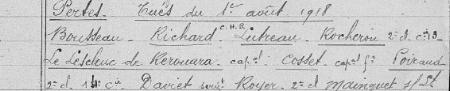 Pertes. Tués du 1er août 1918
Bousseau. Richard C.H.R. Lutreau. Rocheron 2e cl. c.19
Le Lescleuc de Kerouara. capal: Cosset. capal ft Poiraud
2e cl. 14e cie Daviet sergt Royer. 2e cl Mainguet s/lt